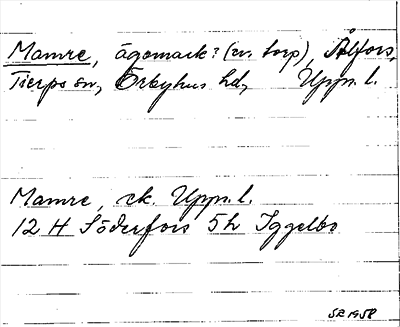 Mamre, ägomark? (ev. torp), Ålfors,
Tierps sn, Örbyhus hd, Uppn. l.
Mamre, ek. Uppn. l.
12 H Söderfors 5h Iggelbo
SE 1958